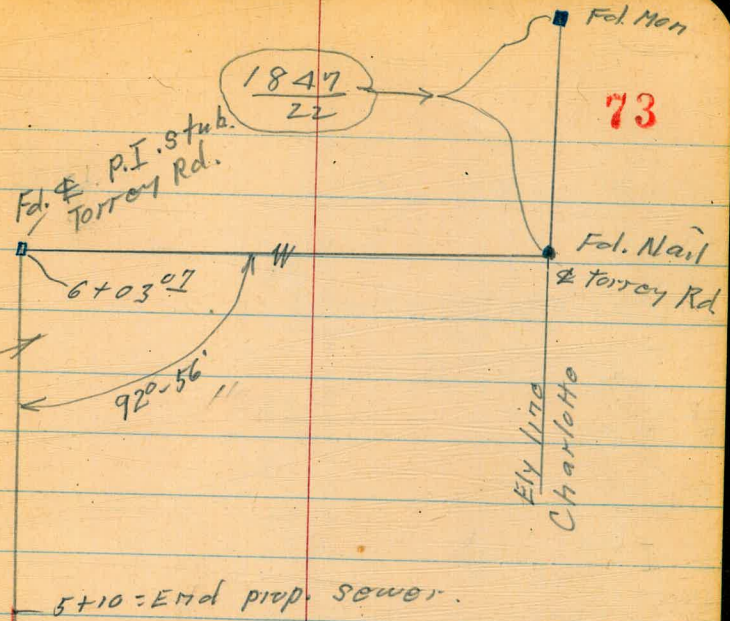 Fd. Mon
1847
22
73
Fd. ℄ P.I. stub.
Torrey Rd.
Fd. Nail
℄ Torrey Rd
6+03 07
92°-56'
Ely line
Charlotte
5+10 = End prop. sewer.